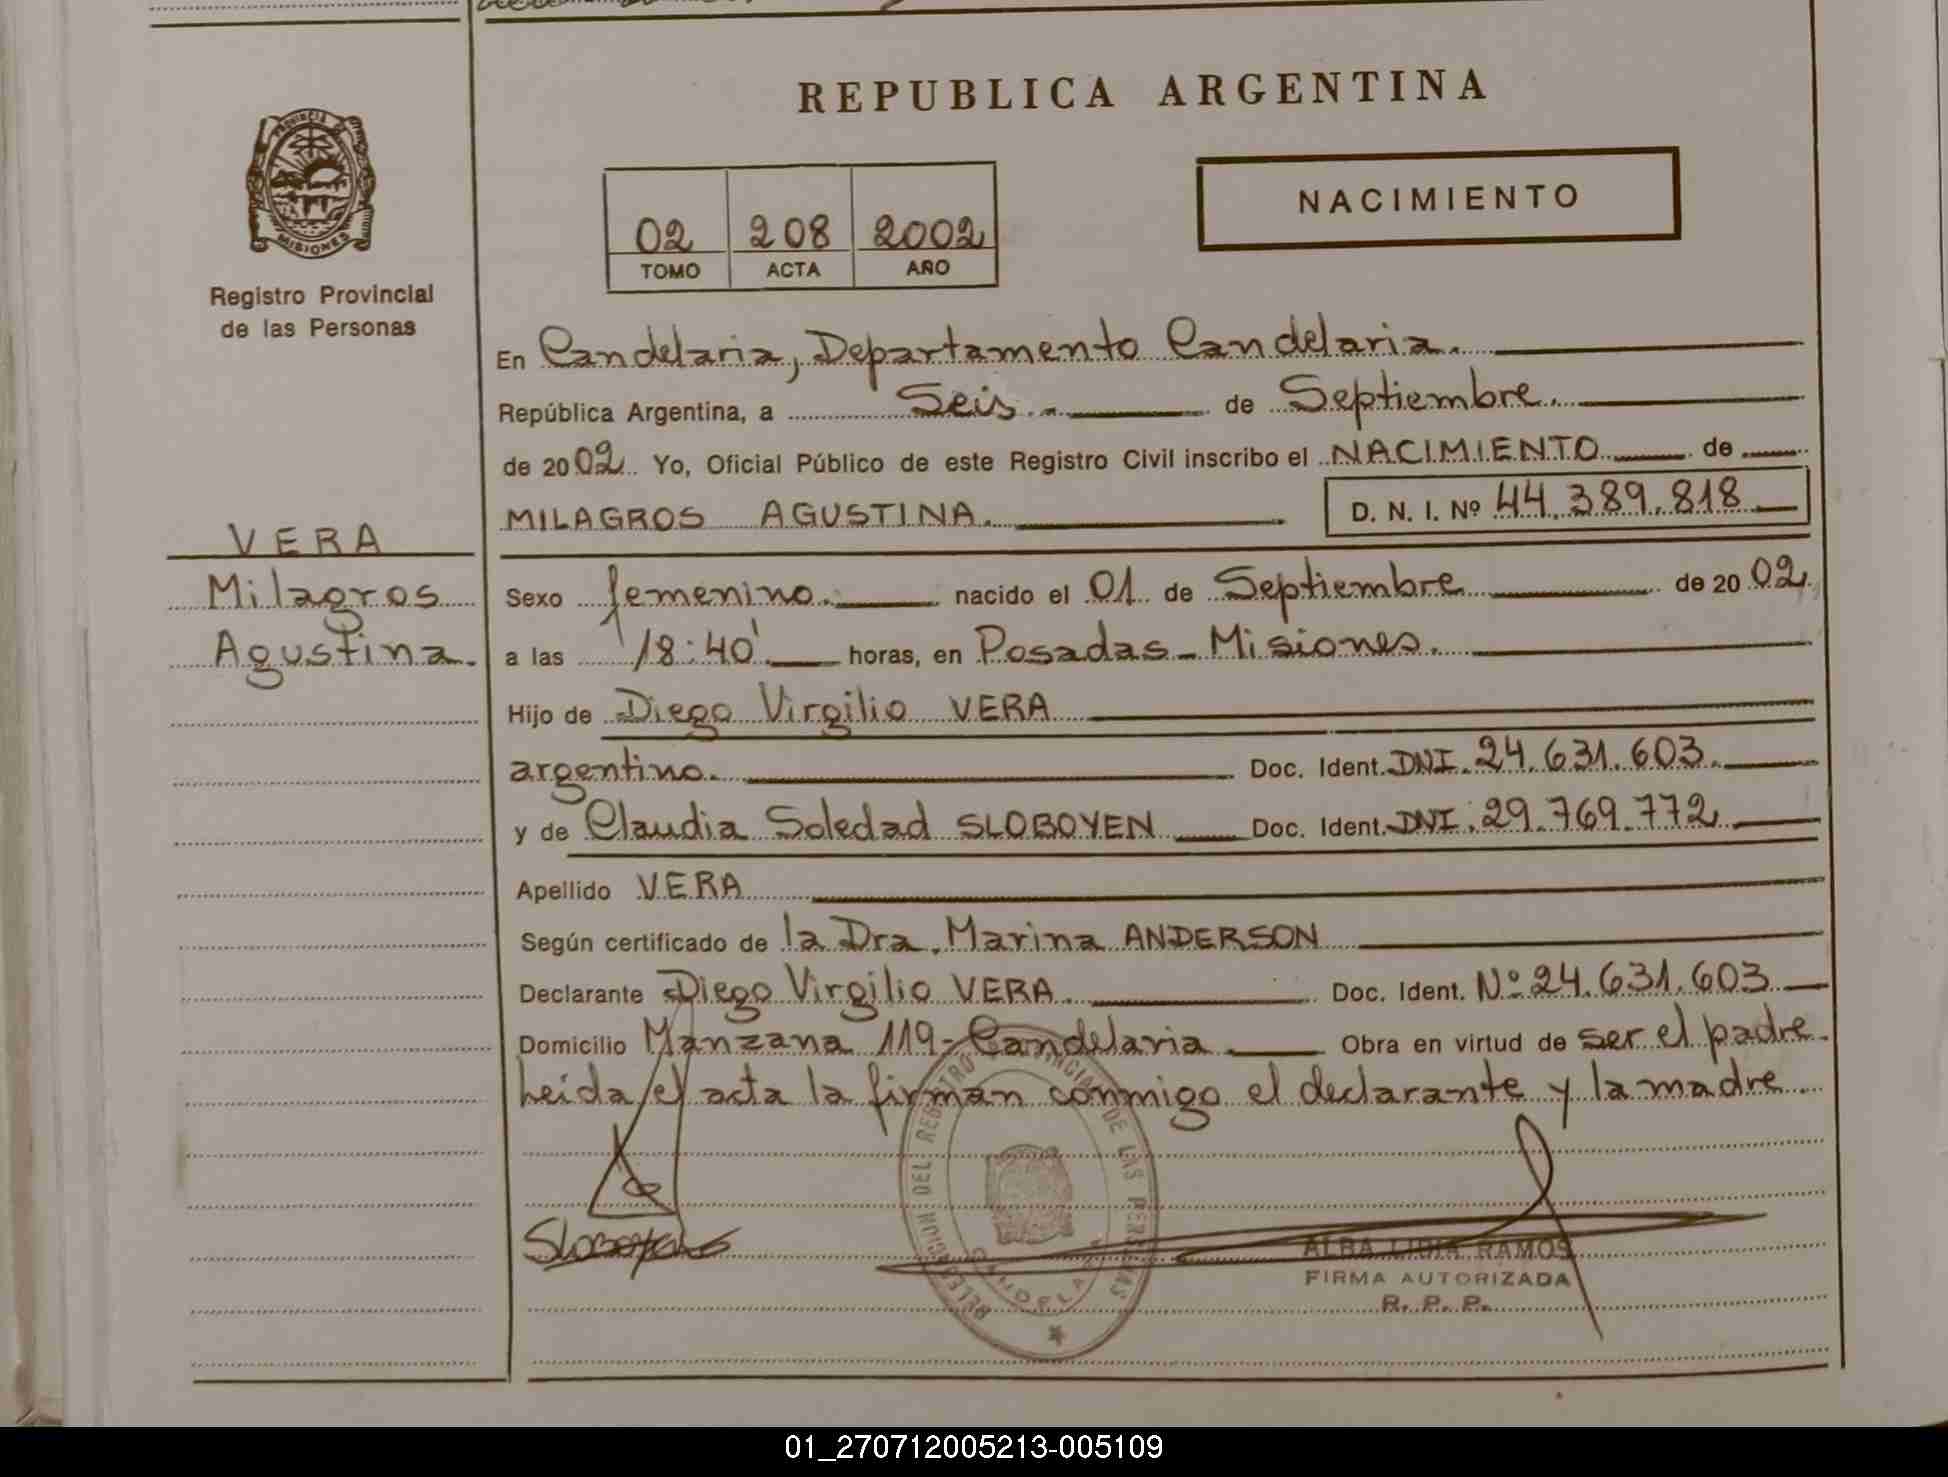 REPUBLICA ARGENTINA
PROVINCIA DE
MISIONES
Registro Provincial
de las Personas
NACIMIENTO
02 208 2002
TOMO ACTA AÑO
En Candelaria, Departamento Candelaria.
República Argentina, a Seis de Septiembre.
de 2002 Yo, Oficial Público de este Registro Civil inscribo el NACIMIENTO de
MILAGROS AGUSTINA. D. N. I. Nº 44.389.818
VERA
Milagros
Agustina.
Sexo femenino. nacido el 01 de Septiembre de 2002
a las 18:40' horas, en Posadas - Misiones.
Hijo de Diego Virgilio VERA
argentino. Doc. Ident. DNI. 24.631.603.
y de Claudia Soledad SLOBOYEN Doc. Ident. DNI. 29.769.772
Apellido VERA
Según certificado de la Dra. Marina ANDERSON
Declarante Diego Virgilio VERA. Doc. Ident. Nº 24.631.603
Domicilio Manzana 119 - Candelaria Obra en virtud de ser el padre.
Leida el acta la firman conmigo el declarante y la madre
DELEGACION DEL REGISTRO PROVINCIAL DE LAS PERSONAS
CANDELARIA
ALBA LIDIA RAMOS
FIRMA AUTORIZADA
R. P. P.
01_270712005213-005109